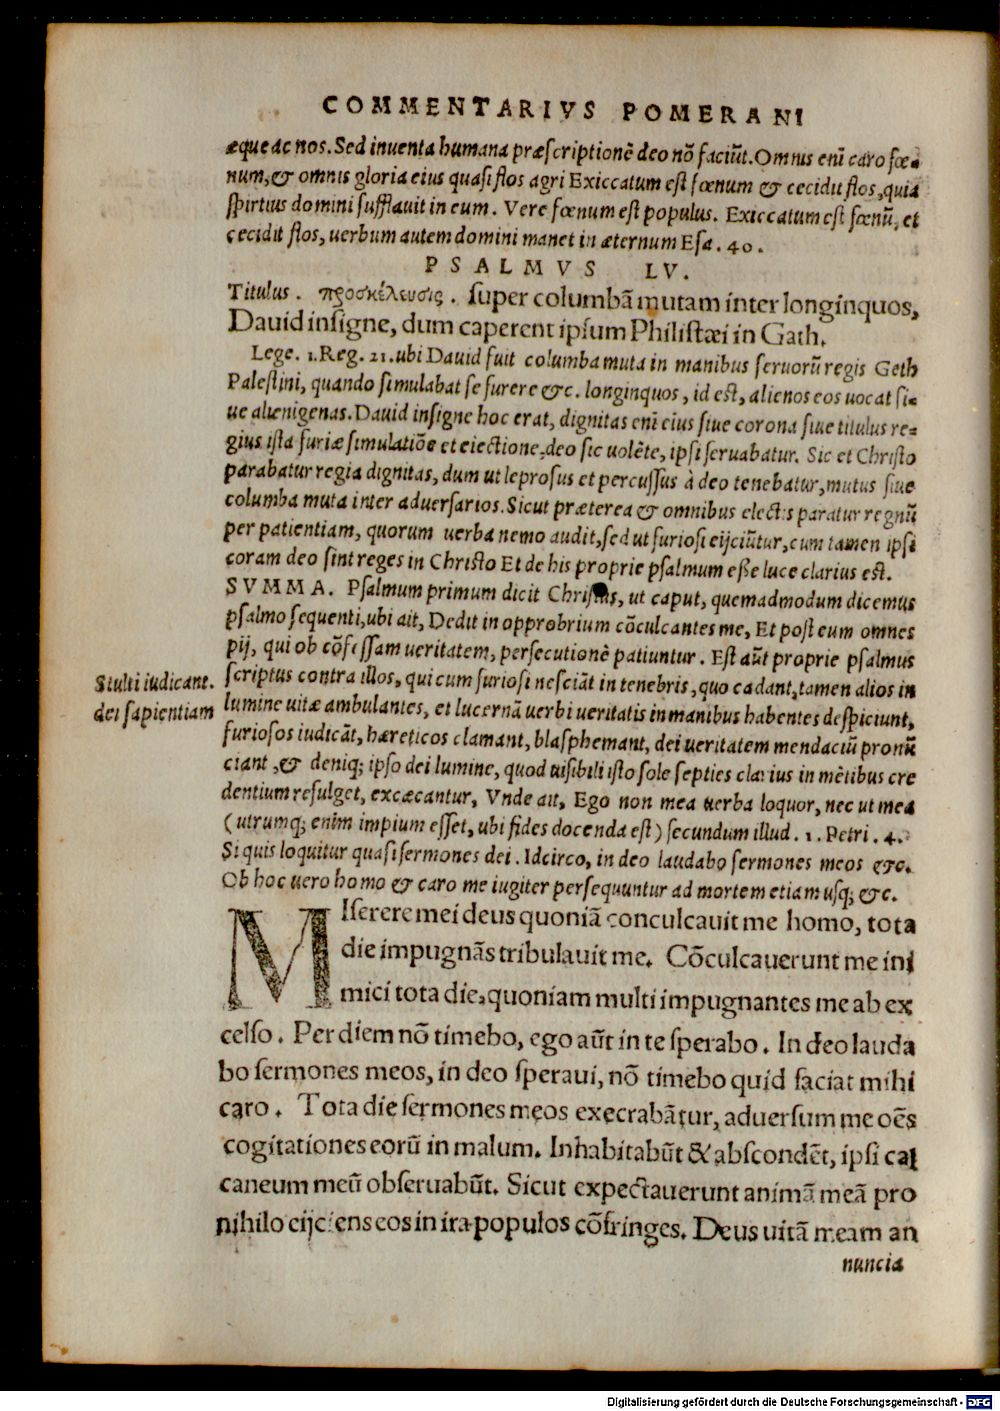 COMMENTARIVS POMERANI
æque ac nos. Sed inuenta humana præſcriptionē deo nō faciūt. Omnis enī caro fœ-
num, & omnis gloria eius quaſi flos agri Exiccatum eſt fœnum & cecidit flos, quia
ſpiritus domini ſufflauit in eum. Vere fœnum eſt populus. Exiccatum eſt fœnū, et
cecidit flos, uerbum autem domini manet in æternum Eſa. 40.
PSALMVS LV.
Titulus. προσκέλευσις. ſuper columbā mutam inter longinquos,
Dauid inſigne, dum caperent ipſum Philiſtæi in Gath.
Lege. 1. Reg. 21. ubi Dauid fuit columba muta in manibus ſeruorū regis Geth
Paleſtini, quando ſimulabat ſe furere &c. longinquos, id eſt, alienos eos uocat ſi-
ue alienigenas. Dauid inſigne hoc erat, dignitas enī eius ſiue corona ſiue titulus re-
gius iſta furiæ ſimulatiōe et eiectione, deo ſic uolēte, ipſi ſeruabatur. Sic et Chriſto
parabatur regia dignitas, dum ut leproſus et percuſſus à deo tenebatur, mutus ſiue
columba muta inter aduerſarios. Sicut præterea & omnibus electis paratur regnū
per patientiam, quorum uerba nemo audit, ſed ut furioſi eijciūtur, cum tamen ipſi
coram deo ſint reges in Chriſto Et de his proprie pſalmum eße luce clarius eſt.
SVMMA. Pſalmum primum dicit Chriſtus, ut caput, quemadmodum dicemus
pſalmo ſequenti, ubi ait, Dedit in opprobrium cōculcantes me, Et poſt eum omnes
pij, qui ob cōfeſſam ueritatem, perſecutionē patiuntur. Eſt aūt proprie pſalmus
Stulti iudicant.
dei ſapientiam
ſcriptus contra illos, qui cum furioſi neſciāt in tenebris, quo cadant, tamen alios in
lumine uitæ ambulantes, et lucernā uerbi ueritatis in manibus habentes deſpiciunt,
furioſos iudicāt, hæreticos clamant, blaſphemant, dei ueritatem mendaciū pronū
ciant, & deniq; ipſo dei lumine, quod uiſibili iſto ſole ſepties clarius in mētibus cre
dentium refulget, excæcantur, Vnde ait, Ego non mea uerba loquor, nec ut mea
(utrumq; enim impium eſſet, ubi fides docenda eſt) ſecundum illud. 1. Petri. 4.
Si quis loquitur quaſi ſermones dei. Idcirco, in deo laudabo ſermones meos &c.
Ob hoc uero homo & caro me iugiter perſequuntur ad mortem etiam uſq; &c.
MIſerere mei deus quoniā conculcauit me homo, tota
die impugnās tribulauit me. Cōculcauerunt me ini
mici tota die, quoniam multi impugnantes me ab ex
celſo. Per diem nō timebo, ego aūt in te ſperabo. In deo lauda
bo ſermones meos, in deo ſperaui, nō timebo quid faciat mihi
caro. Tota die ſermones meos execrabātur, aduerſum me oēs
cogitationes eorū in malum. Inhabitabūt & abſcondēt, ipſi cal
caneum meū obſeruabūt. Sicut expectauerunt animā meā pro
nihilo eijciens eos in ira populos cōfringes. Deus uitā meam an
nuncia
Digitalisierung gefördert durch die Deutsche Forschungsgemeinschaft - DFG